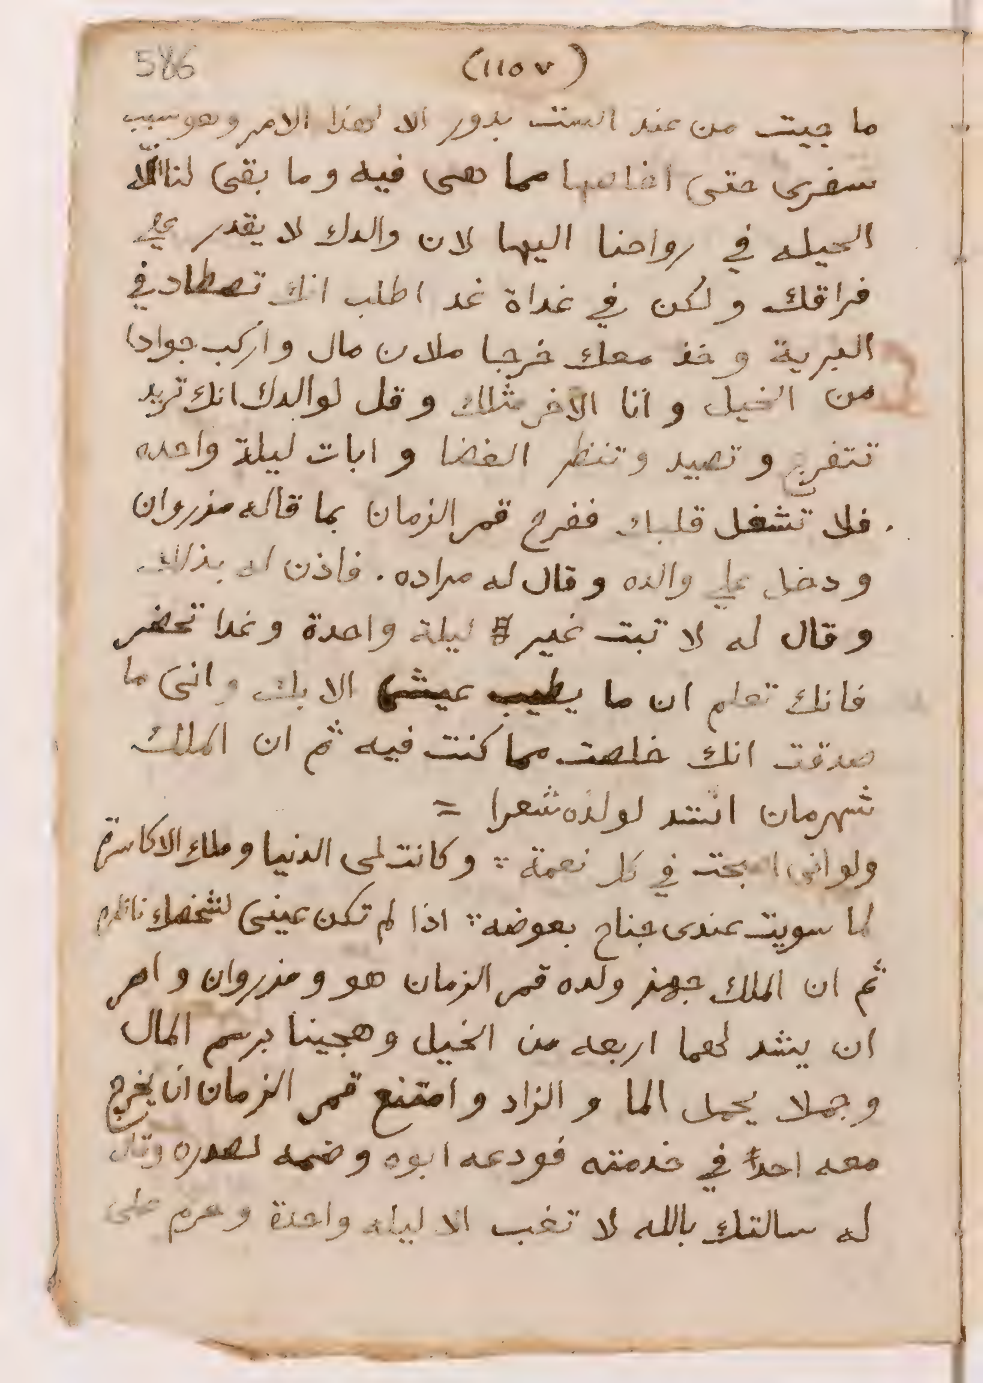 586 (١١٥٧)
ما جيت من عند الست بدور الا لهذا الامر وهو سبب
سفرى حتى اخلصها مما هى فيه وما بقى لنا الا
الحيله في رواحنا اليها لان والدك لا يقدر علي
فراقك ولكن في غداة غد اطلب انك تصطاد في
البرية وخذ معك خرجا ملان مال واركب جوادا
من الخيل وانا الاخر مثلك وقل لوالدك انك تريد
تتفرج وتصيد وتنظر الفضا وابات ليلة واحده
فلا تشغل قلبك ففرح قمر الزمان بما قاله مزروان
ودخل علي والده وقال له مراده . فاذن له بذلك
وقال له لا تبت غير ليلة واحدة وغدا تحضر
فانك تعلم ان ما يطيب عيشى الا بك واننى ما
صدقت انك خلصت مما كنت فيه ثم ان الملك
شهرمان انشد لولده شعرا =
ولو اننى اصبحت في كل نعمة :: وكانت لى الدنيا وملك الاكاسرة
لما سويت عندى جناح بعوضه :: اذا لم تكن عينى لشخصك ناظره
ثم ان الملك جهز ولده قمر الزمان هو ومزروان وامر
ان يشد لهما اربعه من الخيل وهجينا برسم المال
وجملا يحمل الما والزاد وامتنع قمر الزمان ان يخرج
معه احدا في خدمته فودعه ابوه وضمه لصدره وقال
له سالتك بالله لا تغب الا ليله واحدة وحرم على